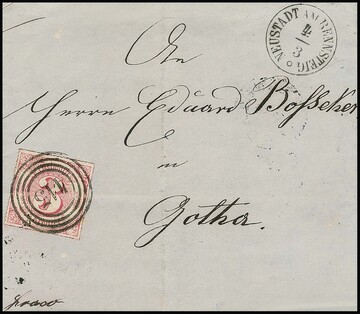 NEUSTADT AM RENNSTEIG
4/3
An
Herrn Eduard Bosseker
in
Gotha.
3
franco